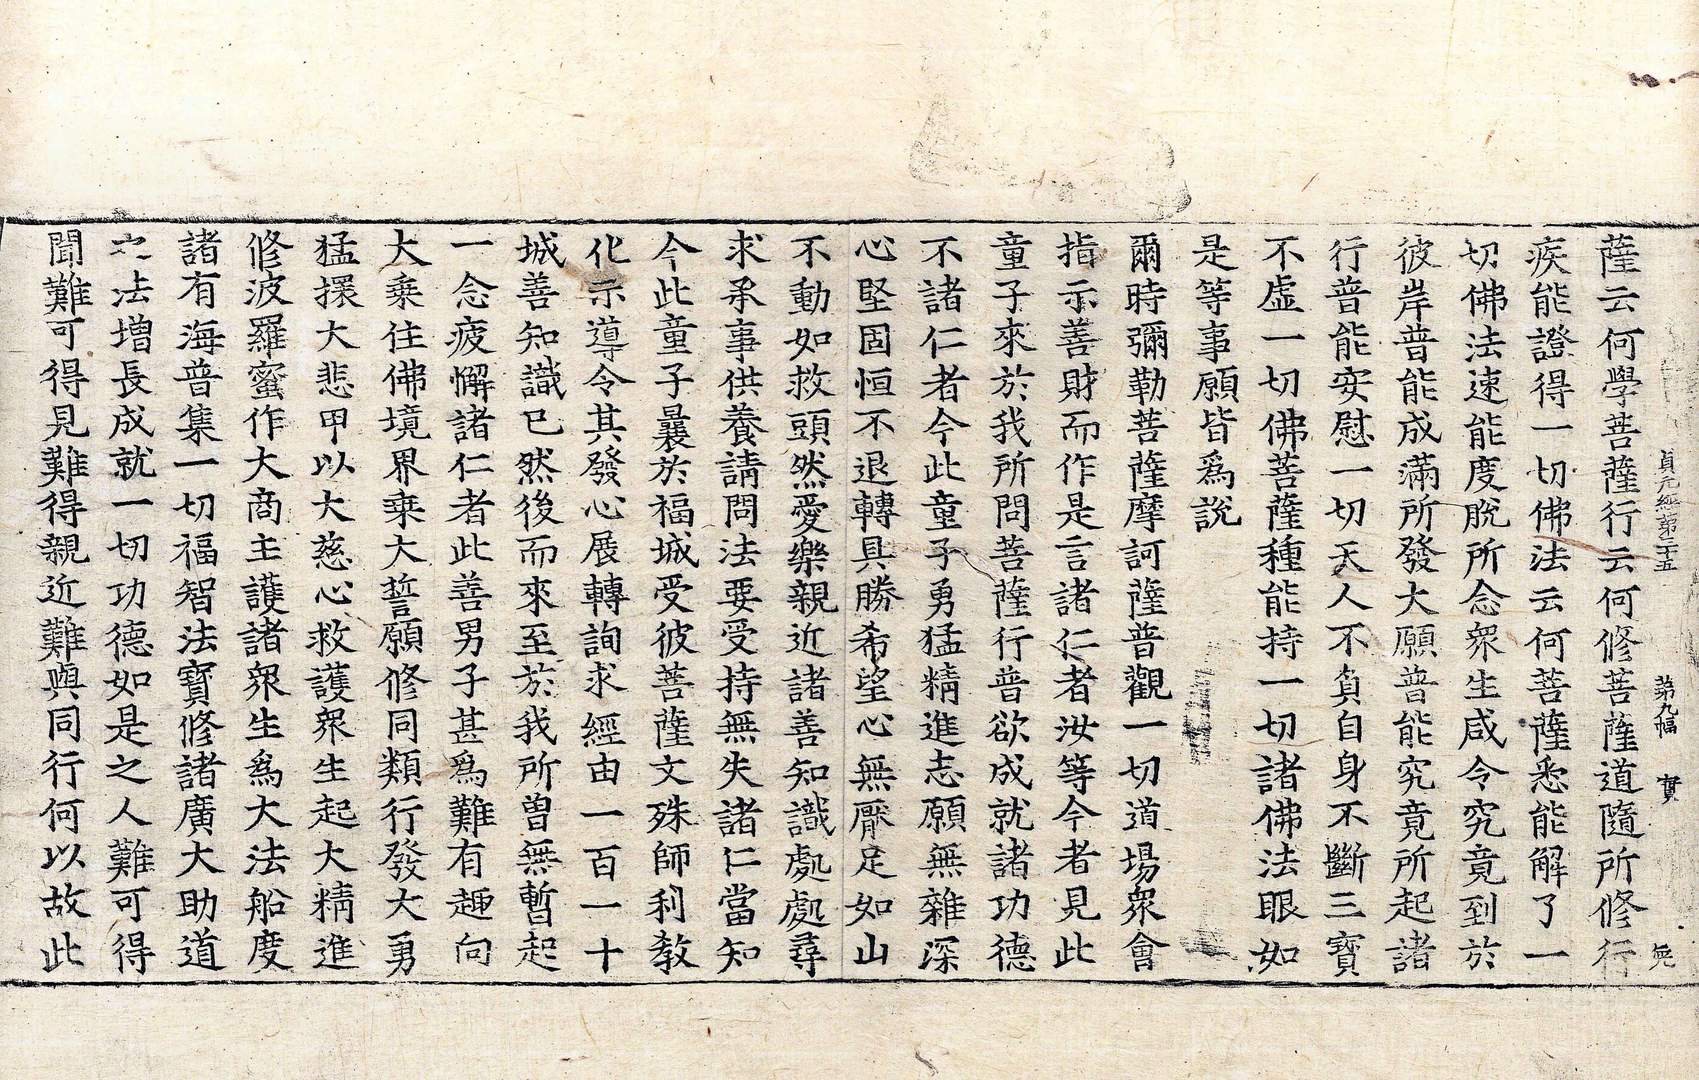 貞元經第三十五　第九幅　實
薩云何學菩薩行云何修菩薩道隨所修行
疾能證得一切佛法云何菩薩悉能解了一
切佛法速能度脫所念衆生咸令究竟到於
彼岸普能成滿所發大願普能究竟所起諸
行普能安慰一切天人不負自身不斷三寶
不虛一切佛菩薩種能持一切諸佛法眼如
是等事願皆爲說
爾時彌勒菩薩摩訶薩普觀一切道場衆會
指示善財而作是言諸仁者汝等今者見此
童子來於我所問菩薩行普欲成就諸功德
不諸仁者今此童子勇猛精進志願無雜深
心堅固恒不退轉具勝希望心無厭足如山
不動如救頭然愛樂親近諸善知識處處尋
求承事供養請問法要受持無失諸仁當知
今此童子曩於福城受彼菩薩文殊師利教
化示導令其發心展轉詢求經由一百一十
城善知識已然後而來至於我所曾無暫起
一念疲懈諸仁者此善男子甚爲難有趣向
大乘住佛境界乘大誓願修同類行發大勇
猛擐大悲甲以大慈心救護衆生起大精進
修波羅蜜作大商主護諸衆生爲大法船度
諸有海普集一切福智法寶修諸廣大助道
之法增長成就一切功德如是之人難可得
聞難可得見難得親近難與同行何以故此